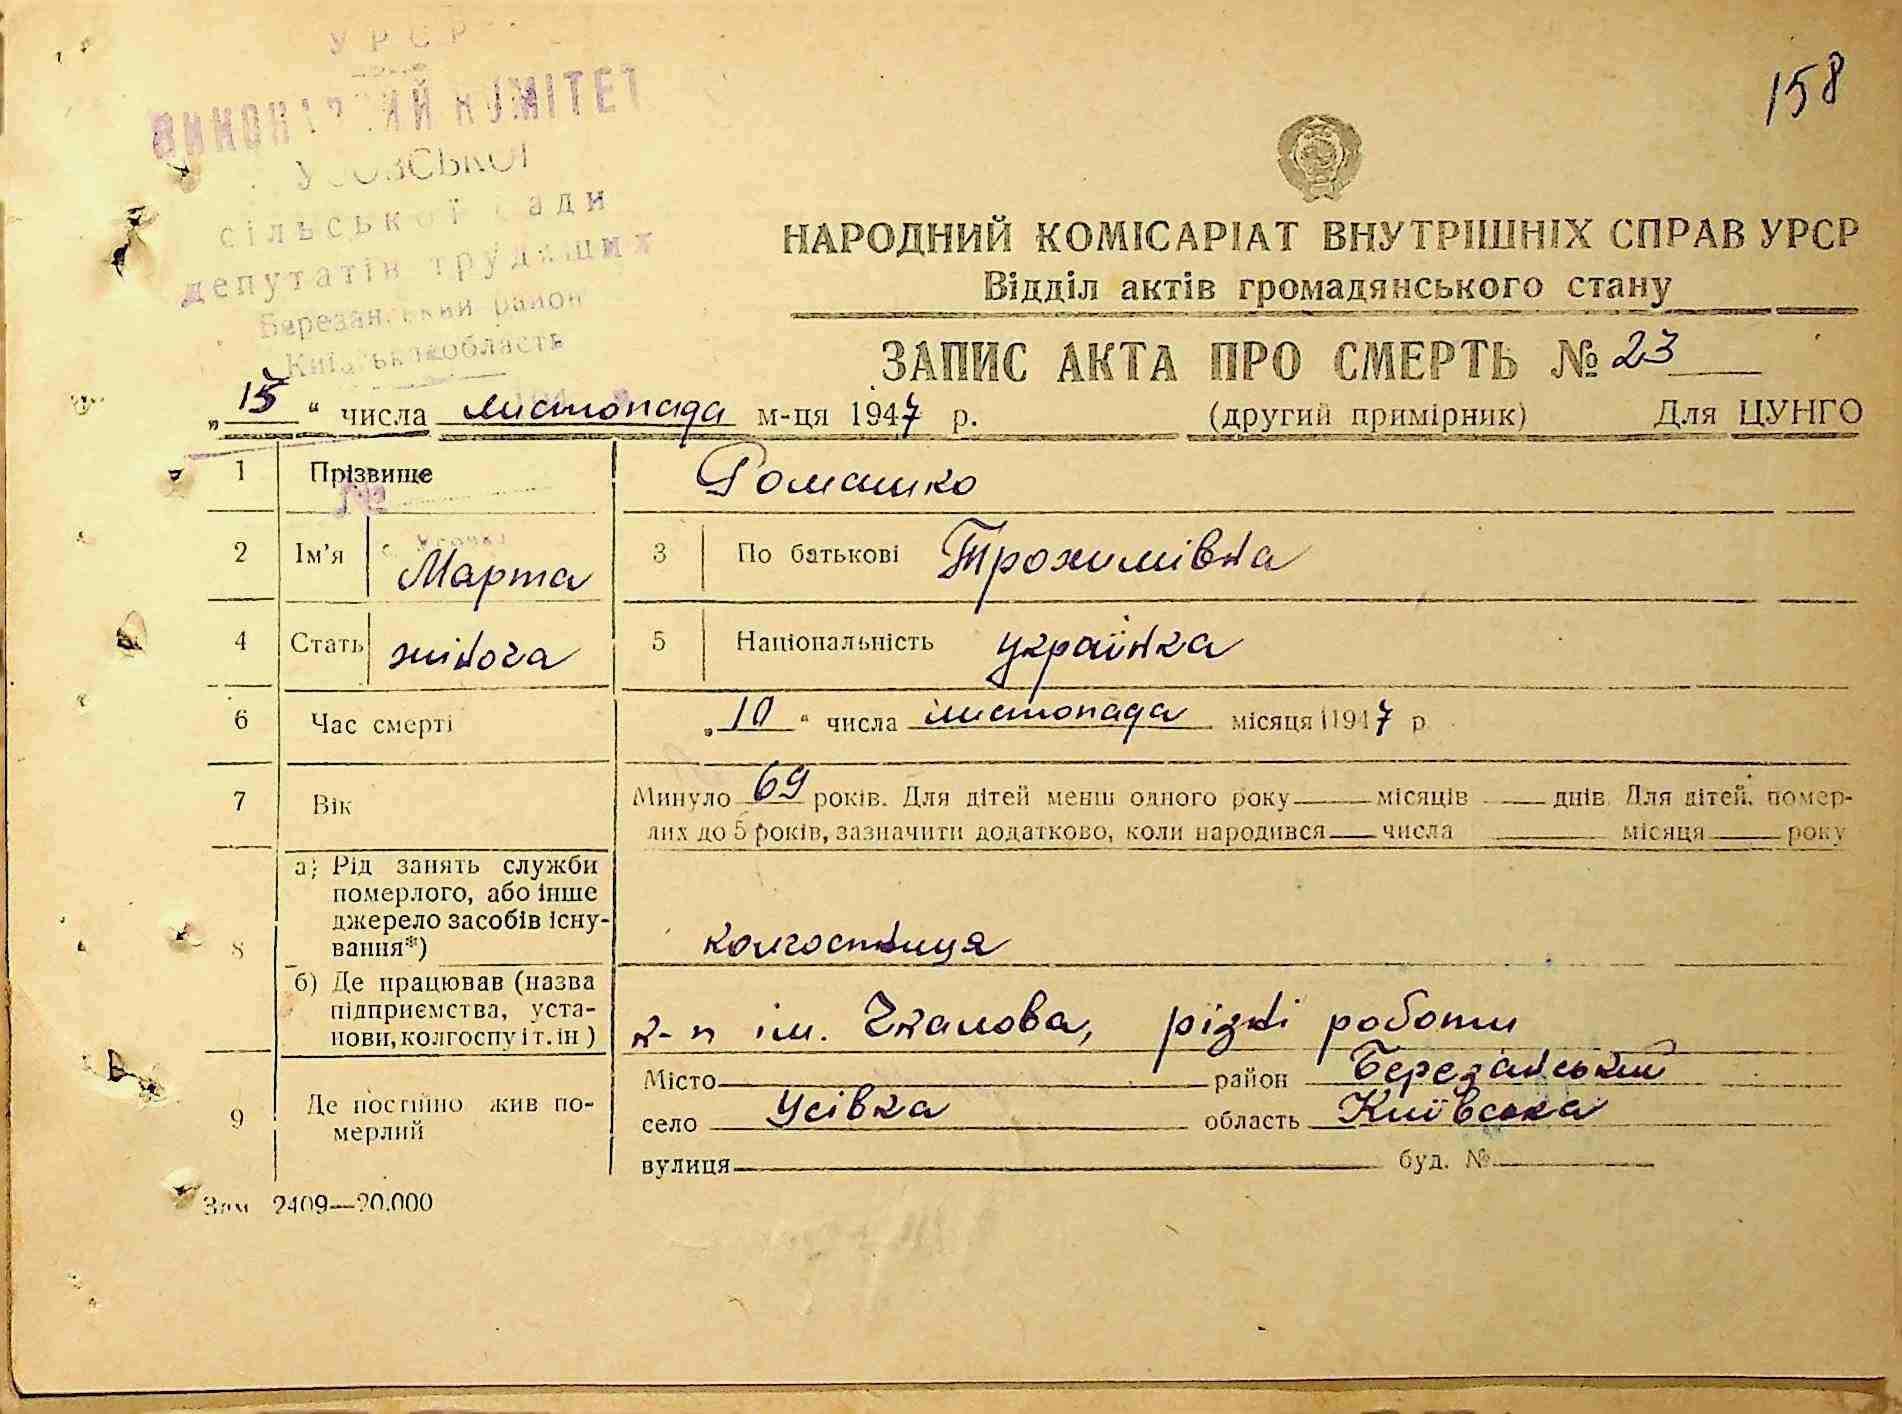 158
УРСР
ВИКОНАВЧИЙ КОМІТЕТ
УСОВСЬКОЇ
сільської ради
депутатів трудящих
Березанський район
Київська область
НАРОДНИЙ КОМІСАРІАТ ВНУТРІШНІХ СПРАВ УРСР
Відділ актів громадянського стану
ЗАПИС АКТА ПРО СМЕРТЬ № 23
„15“ числа листопада м-ця 1947 р. (другий примірник) Для ЦУНГО
1 Прізвище Ромашко
№
2 Ім'я Марта 3 По батькові Трохимівна
4 Стать жіноча 5 Національність українка
6 Час смерті „10“ числа листопада місяця 1947 р.
7 Вік Минуло 69 років. Для дітей менш одного року місяців днів. Для дітей, помер-
лих до 5 років, зазначити додатково, коли народився числа місяця року
8 а) Рід занять служби
померлого, або інше
джерело засобів існу-
вання*) колгоспниця
б) Де працював (назва
підприємства, уста-
нови, колгоспу і т. ін) к-п ім. Чкалова, різні роботи
9 Де постійно жив по-
мерлий
Місто район Березанський
село Усівка область Київська
вулиця буд. №
Зам 2409—20.000